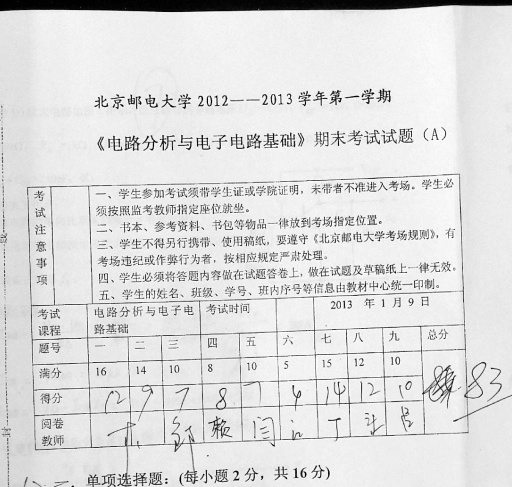 北京邮电大学 2012——2013 学年第一学期
《电路分析与电子电路基础》期末考试试题（A）
考试注意事项
一、学生参加考试须带学生证或学院证明，未带者不准进入考场。学生必
须按照监考教师指定座位就坐。
二、书本、参考资料、书包等物品一律放到考场指定位置。
三、学生不得另行携带、使用稿纸，要遵守《北京邮电大学考场规则》，有
考场违纪或作弊行为者，按相应规定严肃处理。
四、学生必须将答题内容做在试题答卷上，做在试题及草稿纸上一律无效。
五、学生的姓名、班级、学号、班内序号等信息由教材中心统一印制。
考试课程 电路分析与电子电路基础 考试时间 2013 年 1 月 9 日
题号 一 二 三 四 五 六 七 八 九 总分
满分 16 14 10 8 10 5 15 12 10
得分 12 9 7 8 7 4 14 12 10 83
阅卷教师 赖 闫 丁
一、单项选择题：(每小题 2 分，共 16 分)